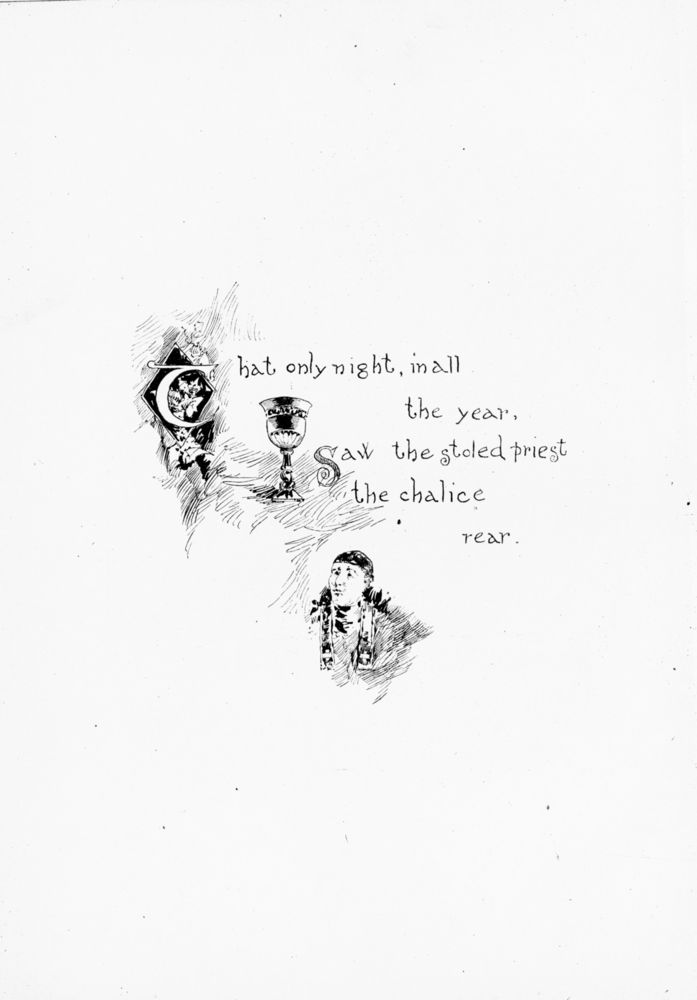 That only night, in all
the year,
Saw the stoled priest
the chalice
rear.